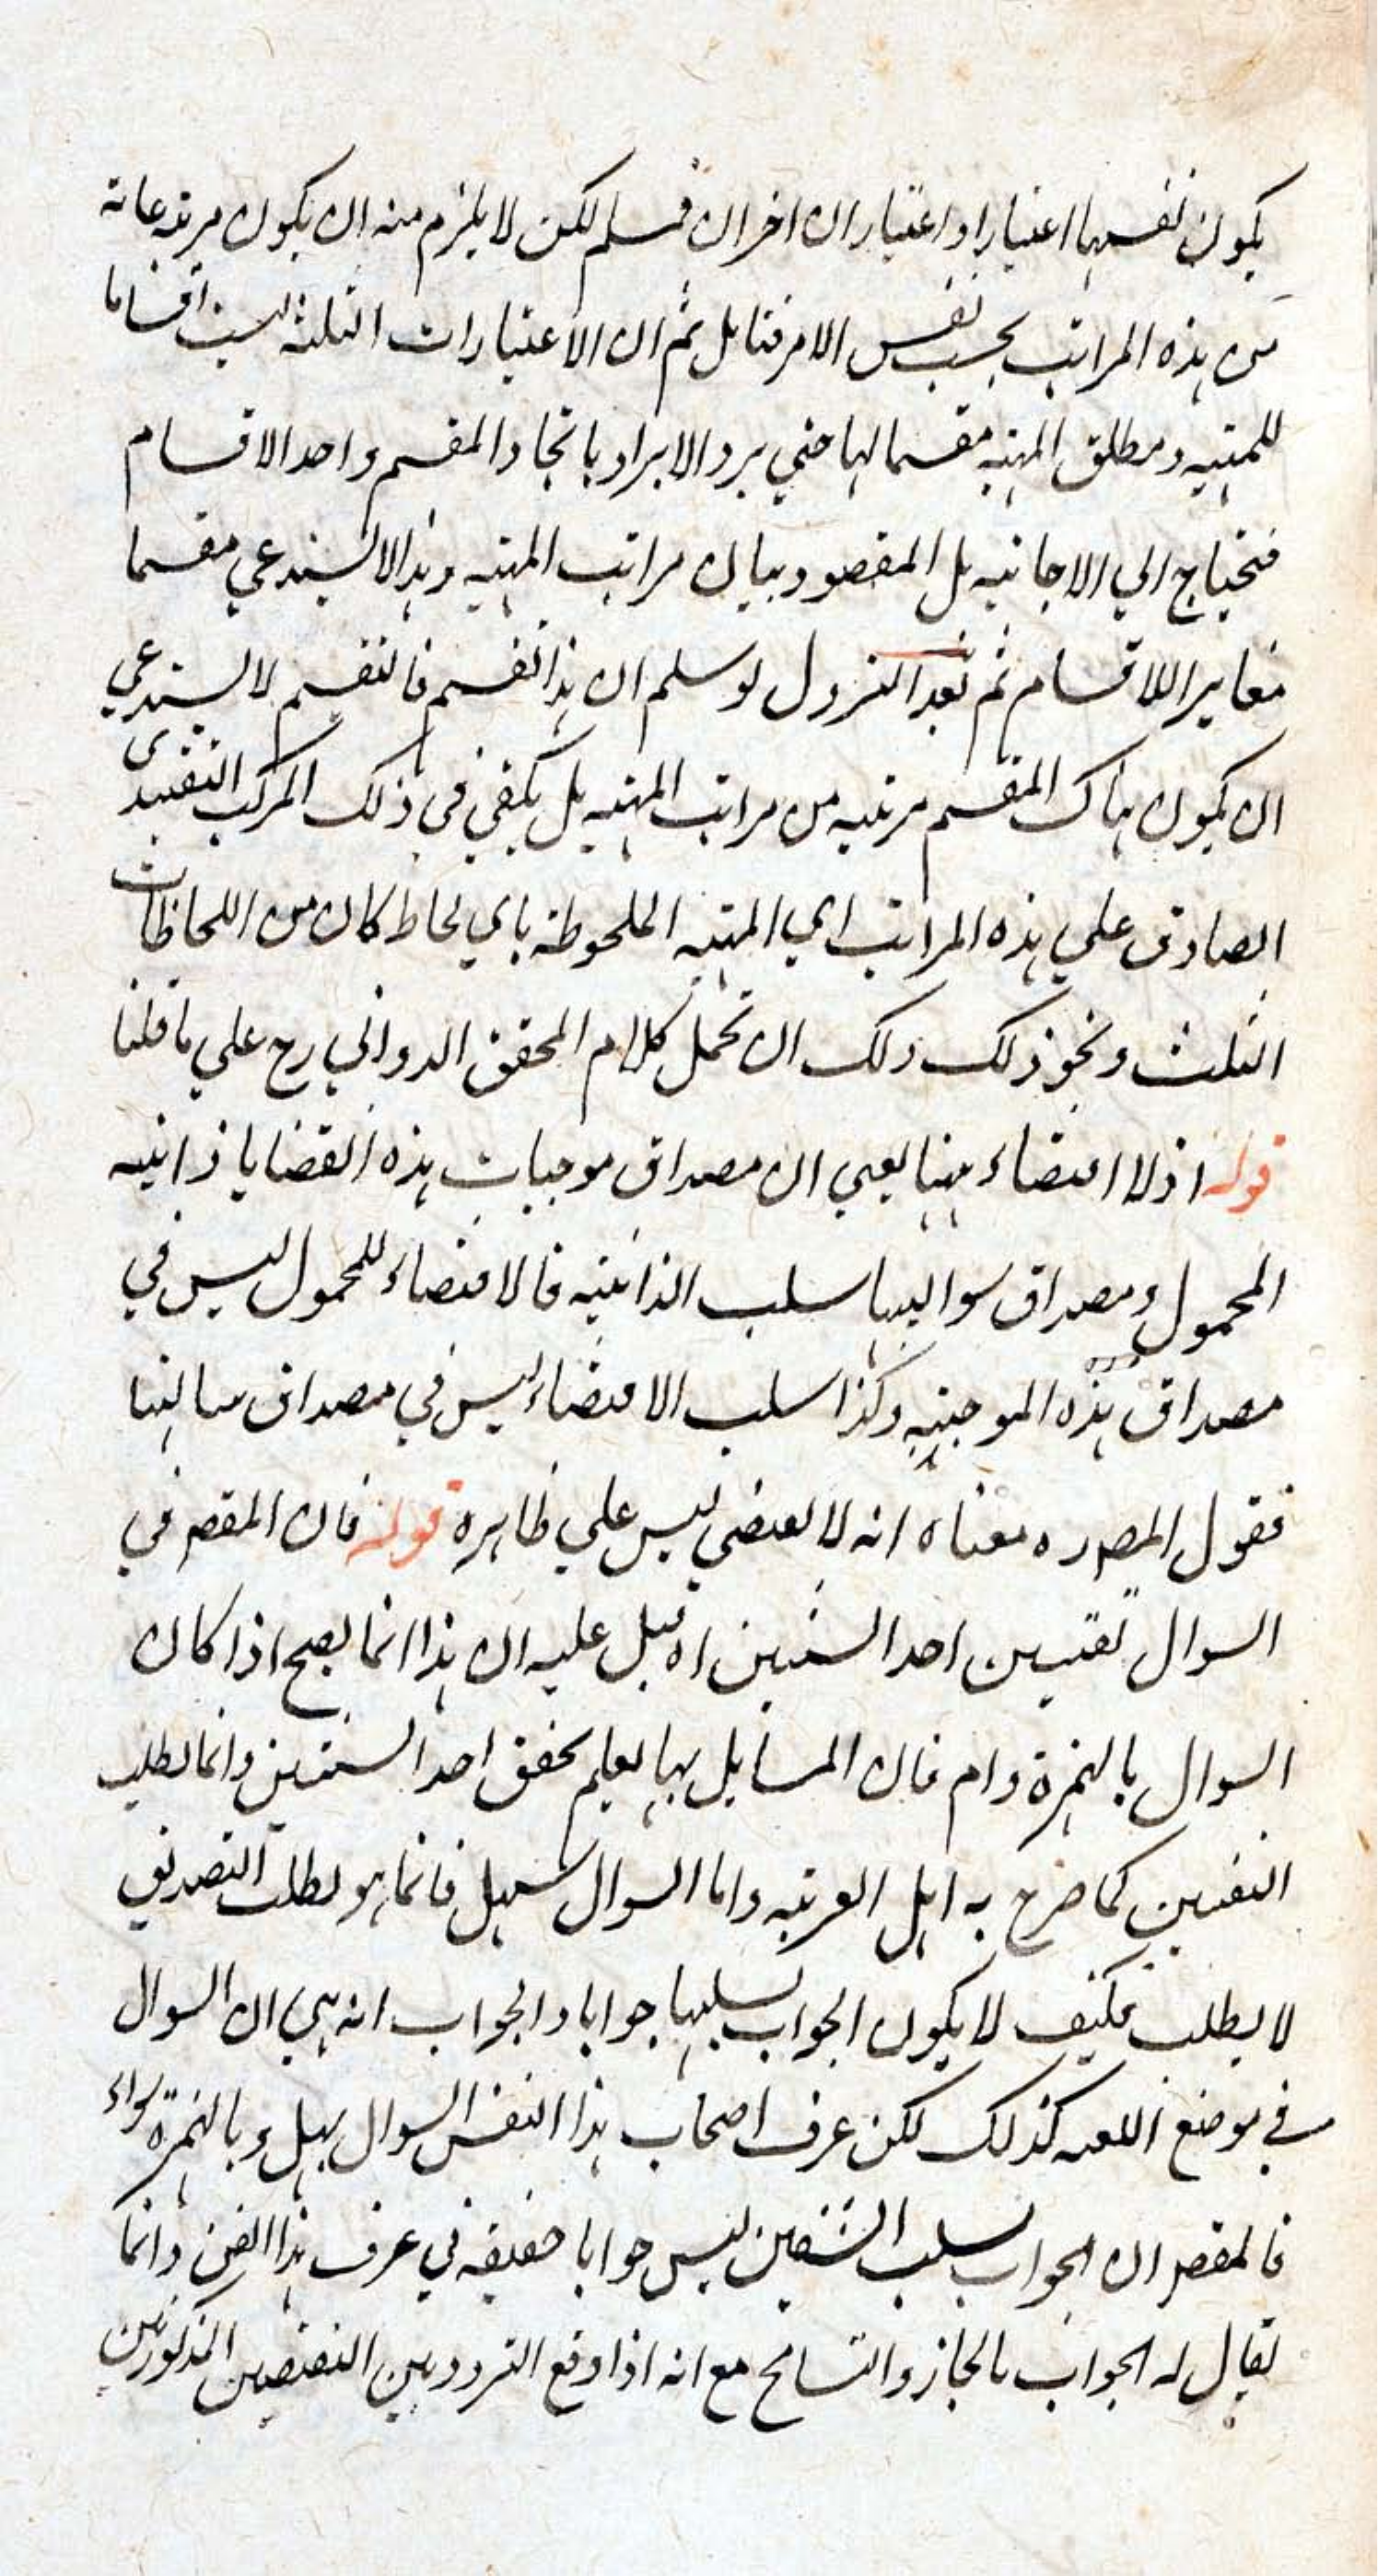 يكون نفسها اعتبارا واعتباران اخران فمسلم لكن لا يلزم منه ان يكون مرتبة عامة
من هذه المراتب بحسب نفس الامر فتامل ثم ان الاعتبارات الثلثة ليست اقساما
للمهية ومطلق المهية مقسما لها حتي يرد الايراد باتحاد المقسم واحد الاقسام
فيحتاج الي الاجابة بل المقصود بيان مراتب المهية وهذا لا يستدعي مقسما
مغايرا للاقسام ثم بعد النزول لو سلم ان هذا تقسيم فالتقسيم لا يستدعي
ان يكون هناك المقسم مرتبة من مراتب المهية بل يكفي في ذلك المركب التقييدى
الصادق علي هذه المراتب اي المهية الملحوظة باي لحاظ كان من اللحاظات
الثلث ونحو ذلك ولك ان تحمل كلام المحقق الدواني رح علي ما قلنا
قوله اذ لا اقتضاء ههنا يعني ان مصداق موجبات هذه القضايا ذاتية
المحمول ومصداق سوالبها سلب الذاتية فالاقتضاء للمحمول ليس في
مصداق هذه الموجبة وكذا سلب الاقتضاء ليس في مصداق سالبتها
فقول المص ره معناه انه لا يقتضي ليس علي ظاهره قوله فان المقصم في
السوال تعيين احد الشيئين اه قيل عليه ان هذا انما يصح اذا كان
السوال بالهمزة وام فان السايل بها يعلم تحقق احد الشيئين وانما يطلب
التعيين كما صرح به اهل العربية واما السوال بهل فانما هو لطلب التصديق
لا يطلب فكيف لا يكون الجواب بسلبها جوابا والجواب انه هي ان السوال
في موضع اللغه كذلك لكن عرف اصحاب هذا الفن السوال بهل وبالهمزة سواء
فالمقصم ان الجواب بسلب الشقين ليس جوابا حقيقة في عرف هذا الفن وانما
يقال له الجواب بالمجاز والتسامح مع انه اذا وقع التردد بين النقيضين المذكورين